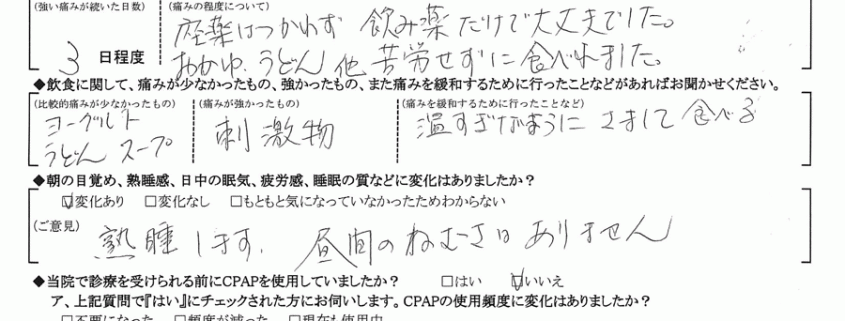 (強い痛みが続いた日数) (痛みの程度について)
座薬はつかわず 飲み薬だけで大丈夫でした。
3 日程度 おかゆ、うどん 他 苦労せずに食べれました。
◆飲食に関して、痛みが少なかったもの、強かったもの、また痛みを緩和するために行ったことなどがあればお聞かせください。
(比較的痛みが少なかったもの) (痛みが強かったもの) (痛みを緩和するために行ったことなど)
ヨーグルト 刺激物 温すぎないように さまして 食べる
うどん スープ
◆朝の目覚め、熟睡感、日中の眠気、疲労感、睡眠の質などに変化はありましたか?
☑変化あり □変化なし □もともと気になっていなかったためわからない
(ご意見) 熟睡します。 昼間のねむさはありません
◆当院で診療を受けられる前にCPAPを使用していましたか? □はい ☑いいえ
ア、上記質問で『はい』にチェックされた方にお伺いします。CPAPの使用頻度に変化はありましたか?
□不要になった □頻度が減った □現在も使用中